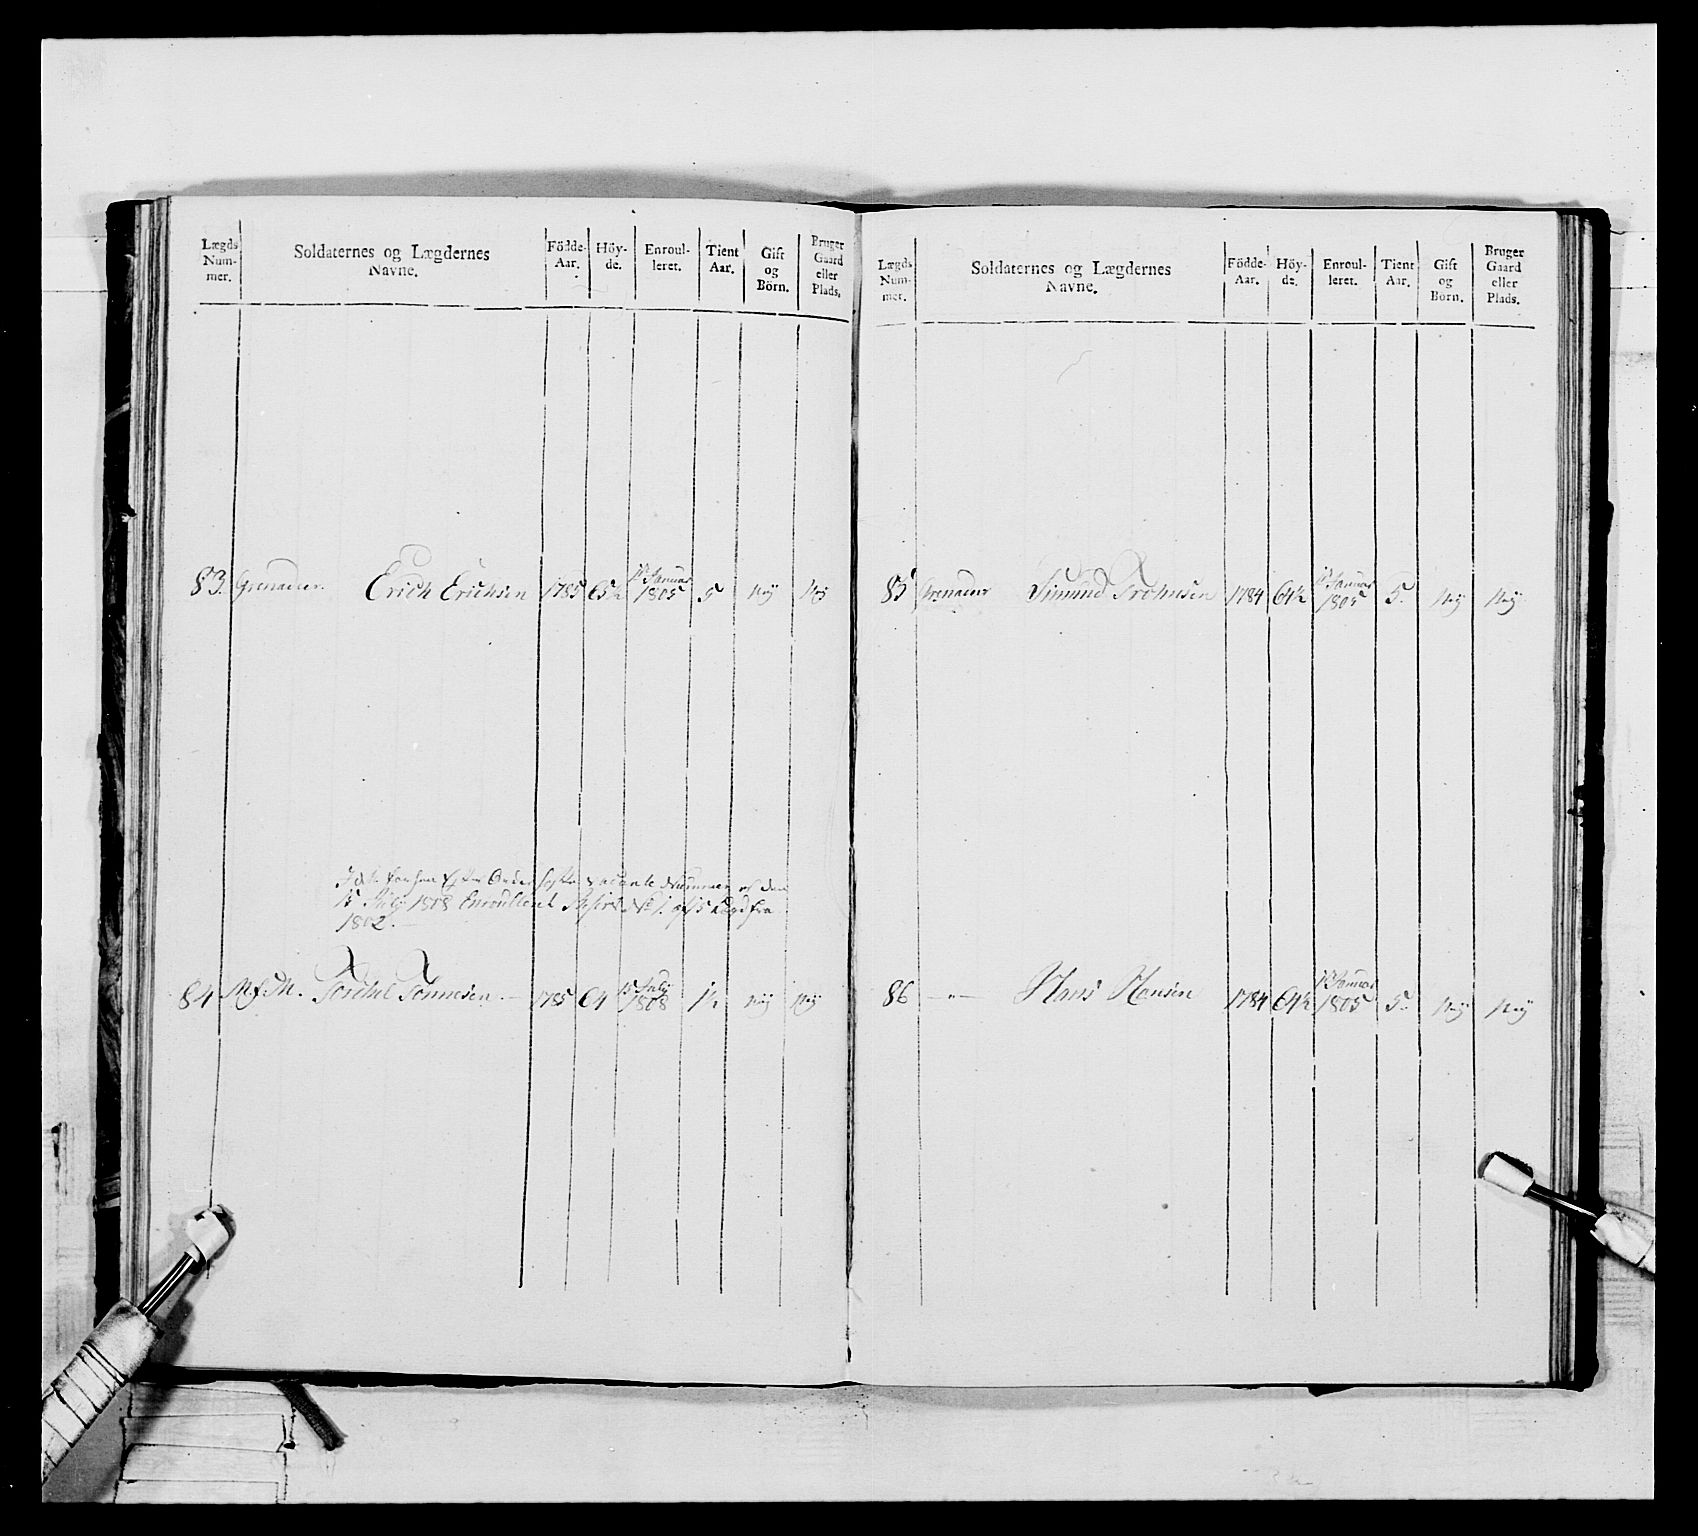 Lægds Num- mer.
Soldaternes og Lægdernes Navne.
Födde- Aar.
Höy- de.
Enroul- leret.
Tient Aar.
Gift og Börn.
Bruger Gaard eller Plads.
83. Grenadeer. Erich Erichsen 1785 65½ 1ste Januar 1805 5 Nej Nej
vacante Nummer af den
15 July 1808 Enroulleret No 1. af 5 Lægd fra
1802.
84 M.f.M. Tordkel Tönnesen. 1785 64 15 July 1808 1½ Nej Nej
Lægds Num- mer.
Soldaternes og Lægdernes Navne.
Födde- Aar.
Höy- de.
Enroul- leret.
Tient Aar.
Gift og Börn.
Bruger Gaard eller Plads.
85 Grenadeer Simund 1784 64½ 1ste Januar 1805 5. Nej Nej.
86 -"- Hans Hansen 1784 64½ 1ste Januar 1805 5. Nej Nej